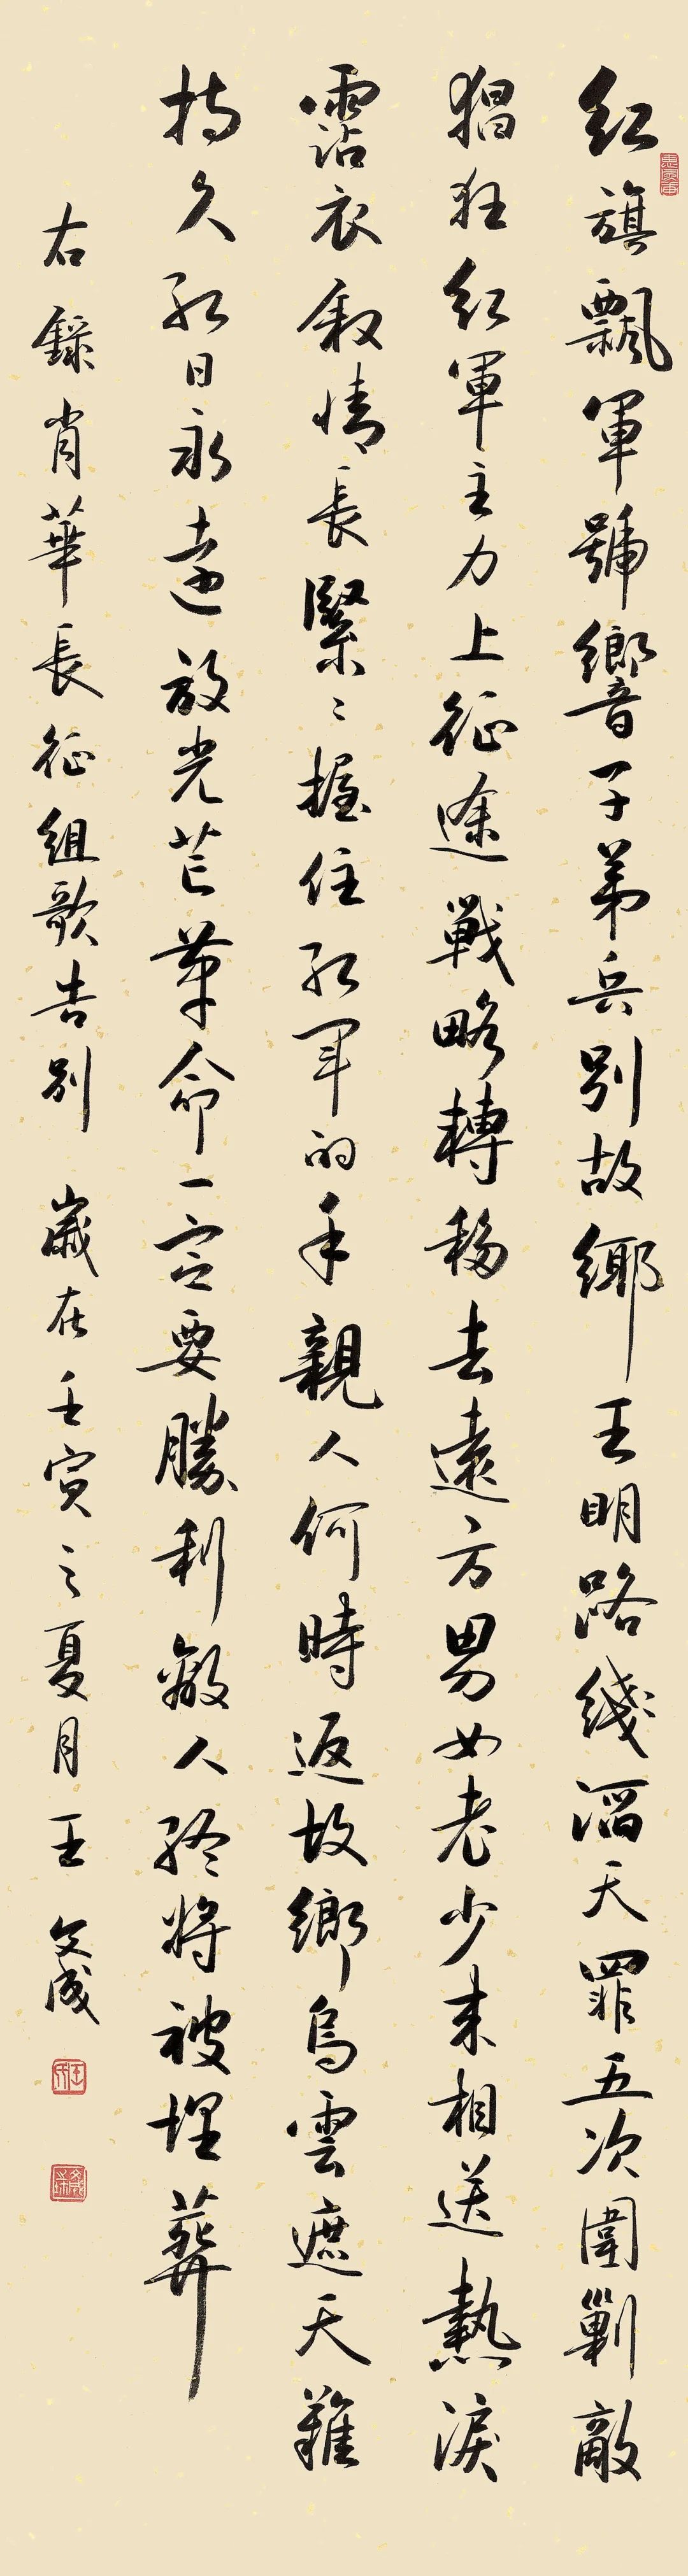 紅旗飄軍號響子弟兵別故鄉王明路綫滔天罪五次圍剿敵
猖狂紅軍主力上征途戰略轉移去遠方男女老少来相送熱淚
霑衣敘情長緊〻握住紅軍的手親人何時返故鄉烏雲遮天難
持久紅日永遠放光芒革命一定要勝利敵人終將被埋葬
右錄肖華長征組歌告別 歲在壬寅之夏月王文成